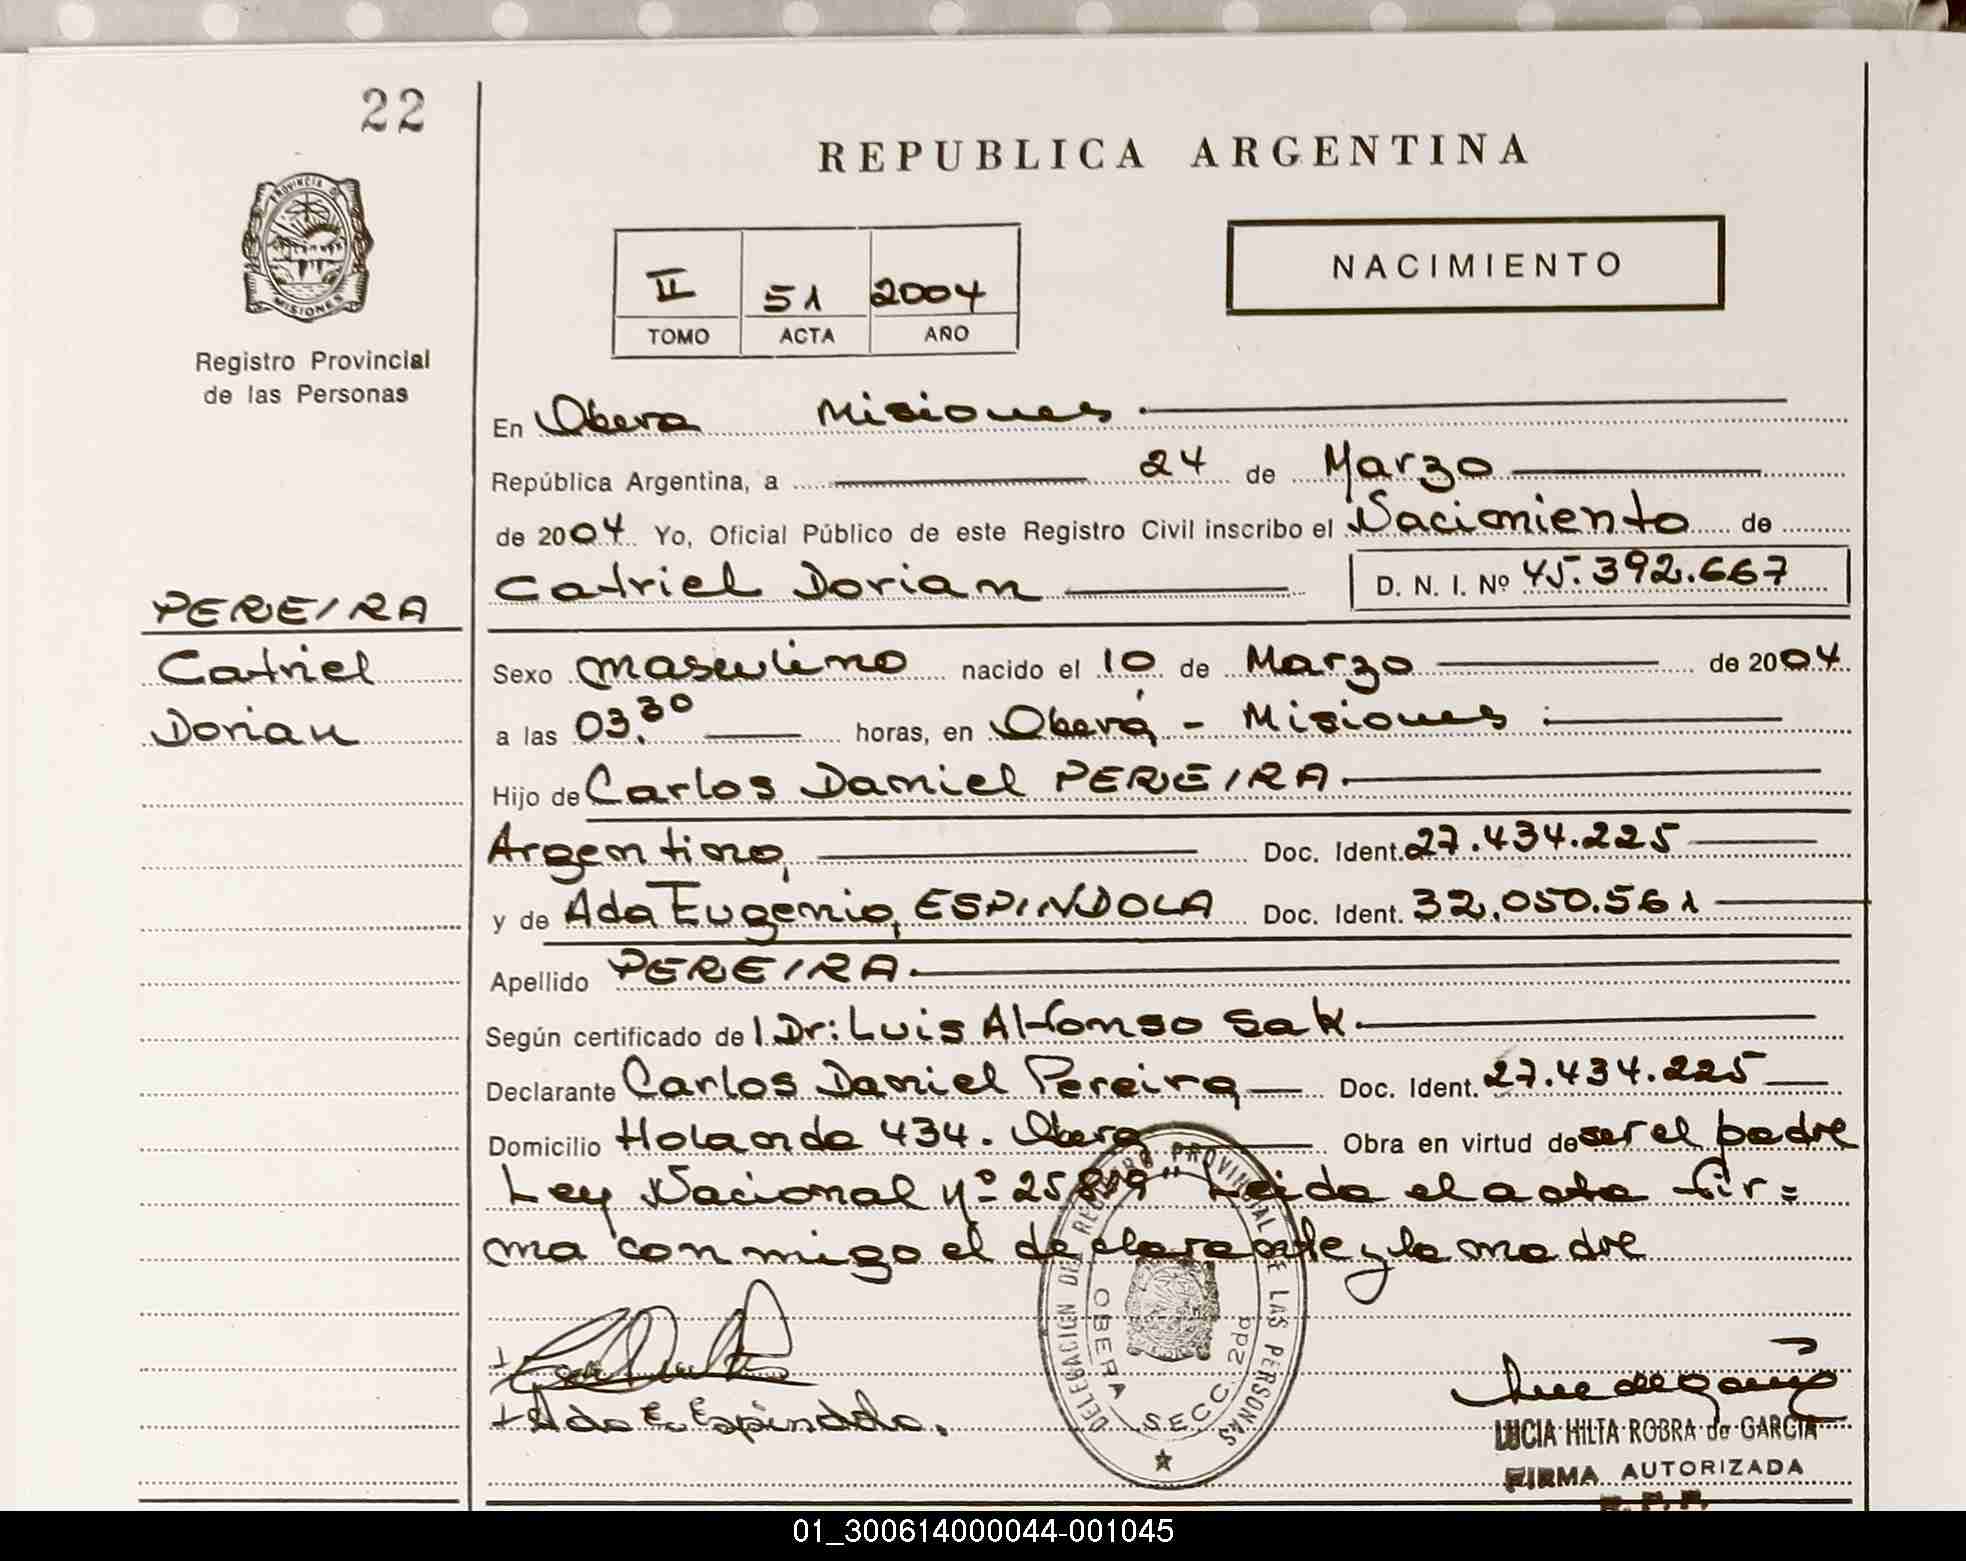 22
REPUBLICA ARGENTINA
PROVINCIA DE MISIONES
Registro Provincial
de las Personas
NACIMIENTO
II 51 2004
TOMO ACTA AÑO
En Obera Misiones
República Argentina, a 24 de Marzo
de 2004 Yo, Oficial Público de este Registro Civil inscribo el Nacimiento de
Catriel Dorian D. N. I. Nº 45.392.667
PEREIRA
Catriel
Dorian
Sexo masculino nacido el 10 de Marzo de 2004
a las 03.30 horas, en Oberá - Misiones
Hijo de Carlos Daniel PEREIRA
Argentino, Doc. Ident. 27.434.225
y de Ada Eugenia, ESPINDOLA Doc. Ident. 32.050.561
Apellido PEREIRA
Según certificado de l Dr: Luis Alfonso Sak
Declarante Carlos Daniel Pereira Doc. Ident. 27.434.225
Domicilio Holanda 434. Obera Obra en virtud de ser el padre
Ley Nacional nº 25819" Leida el acta fir=
ma conmigo el declarante y la madre
DELEGACION DEL REGISTRO PROVINCIAL DE LAS PERSONAS
OBERA SECC. 2da
Ada E. Espindola.
LUCIA HILTA ROBRA de GARCIA
FIRMA AUTORIZADA
R. P. P.
01_300614000044-001045